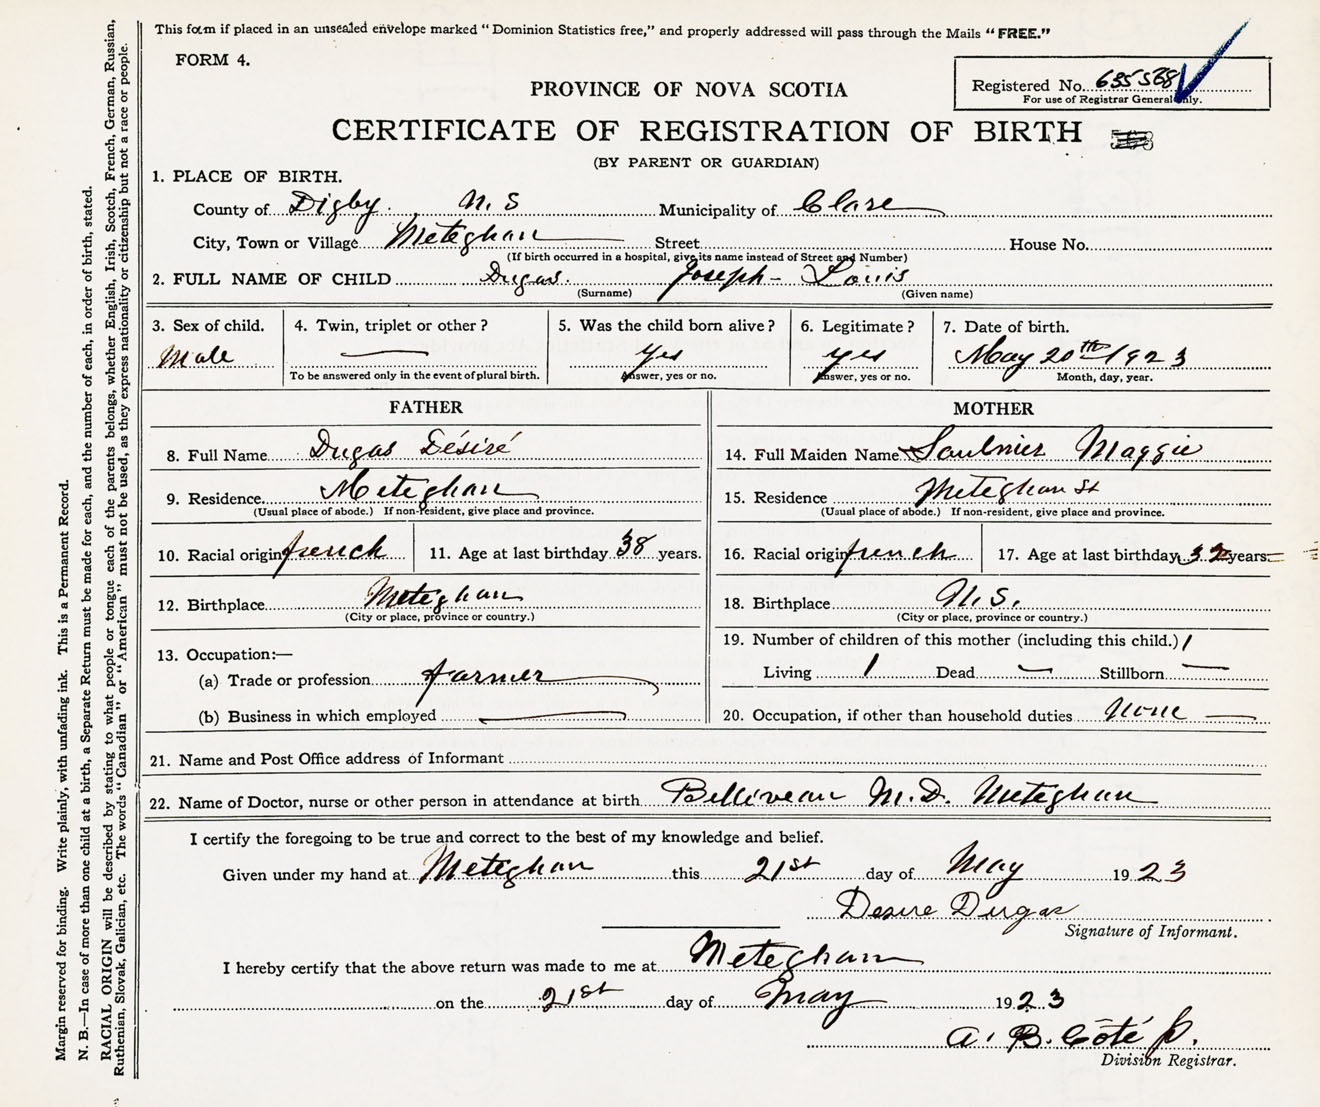 This form if placed in an unsealed envelope marked "Dominion Statistics free," and properly addressed will pass through the Mails "FREE."
FORM 4.
Registered No. 635568
For use of Registrar General only.
PROVINCE OF NOVA SCOTIA
CERTIFICATE OF REGISTRATION OF BIRTH
(BY PARENT OR GUARDIAN)
1. PLACE OF BIRTH.
County of Digby N.S Municipality of Clare
City, Town or Village Meteghan Street House No.
(If birth occurred in a hospital, give its name instead of Street and Number)
2. FULL NAME OF CHILD Dugas Joseph - Louis
(Surname) (Given name)
3. Sex of child. 4. Twin, triplet or other? 5. Was the child born alive? 6. Legitimate? 7. Date of birth.
Male — Yes yes May 20th 1923
To be answered only in the event of plural birth. Answer, yes or no. Answer, yes or no. Month, day, year.
FATHER MOTHER
8. Full Name Dugas Désiré 14. Full Maiden Name Saulnier Maggie
9. Residence Meteghan 15. Residence Meteghan St
(Usual place of abode.) If non-resident, give place and province. (Usual place of abode.) If non-resident, give place and province.
10. Racial origin french 11. Age at last birthday 38 years. 16. Racial origin french 17. Age at last birthday 32 years.
12. Birthplace Meteghan 18. Birthplace N.S.
(City or place, province or country.) (City or place, province or country.)
13. Occupation:— 19. Number of children of this mother (including this child.) 1
(a) Trade or profession farmer Living 1 Dead — Stillborn —
(b) Business in which employed — 20. Occupation, if other than household duties None —
21. Name and Post Office address of Informant
22. Name of Doctor, nurse or other person in attendance at birth Belliveau M.D. Meteghan
I certify the foregoing to be true and correct to the best of my knowledge and belief.
Given under my hand at Meteghan this 21st day of May 1923
Desire Dugas
Signature of Informant.
I hereby certify that the above return was made to me at Meteghan
on the 21st day of May 1923
A. B. Côté p.
Division Registrar.
Margin reserved for binding. Write plainly, with unfading ink. This is a Permanent Record.
N. B.—In case of more than one child at a birth, a Separate Return must be made for each, and the number of each, in order of birth, stated.
RACIAL ORIGIN will be described by stating to what people or tongue each of the parents belongs, whether English, Irish, Scotch, French, German, Russian,
Ruthenian, Slovak, Galician, etc. The words "Canadian" or "American" must not be used, as they express nationality or citizenship but not a race or people.